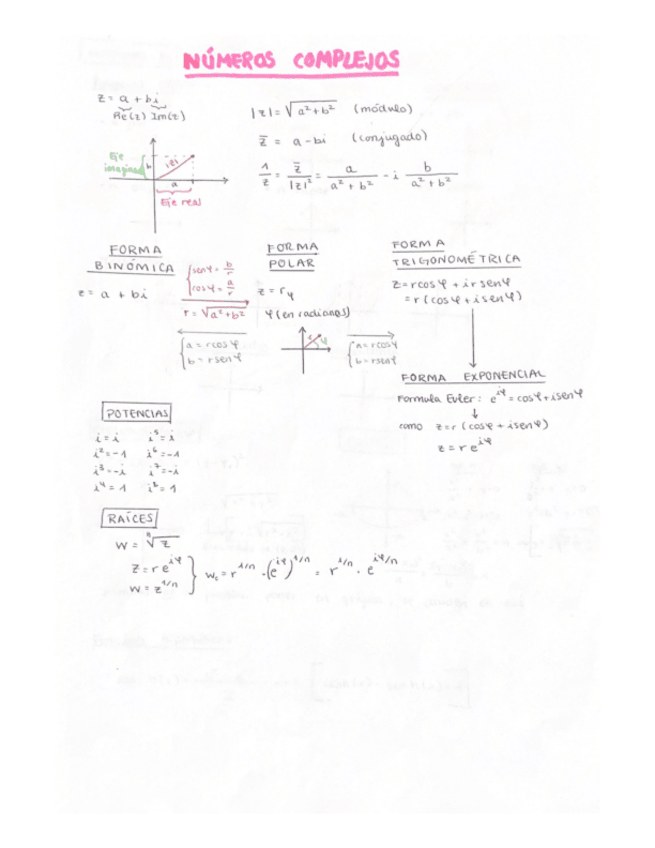 NÚMEROS COMPLEJOS
z = a + bi
Re(z) Im(z)
|z| = √(a² + b²) (módulo)
z̄ = a - bi (conjugado)
1/z = z̄/|z|² = a/(a² + b²) - i b/(a² + b²)
Eje imaginario
b
|z|
a
Eje real
FORMA BINÓMICA
z = a + bi
senφ = b/r
cosφ = a/r
r = √(a² + b²)
a = r cosφ
b = r senφ
FORMA POLAR
z = r_φ
φ (en radianes)
r φ
a = r cosφ
b = r senφ
FORMA TRIGONOMÉTRICA
z = r cosφ + i r senφ
= r (cosφ + i senφ)
FORMA EXPONENCIAL
Formula Euler: e^(iφ) = cosφ + i senφ
como z = r (cosφ + i senφ)
z = r e^(iφ)
POTENCIAS
i = i i⁵ = i
i² = -1 i⁶ = -1
i³ = -i i⁷ = -i
i⁴ = 1 i⁸ = 1
RAÍCES
w = ⁿ√z
z = r e^(iφ)
w = z^(1/n)
w = r^(1/n) · (e^(iφ))^(1/n) = r^(1/n) · e^(iφ/n)